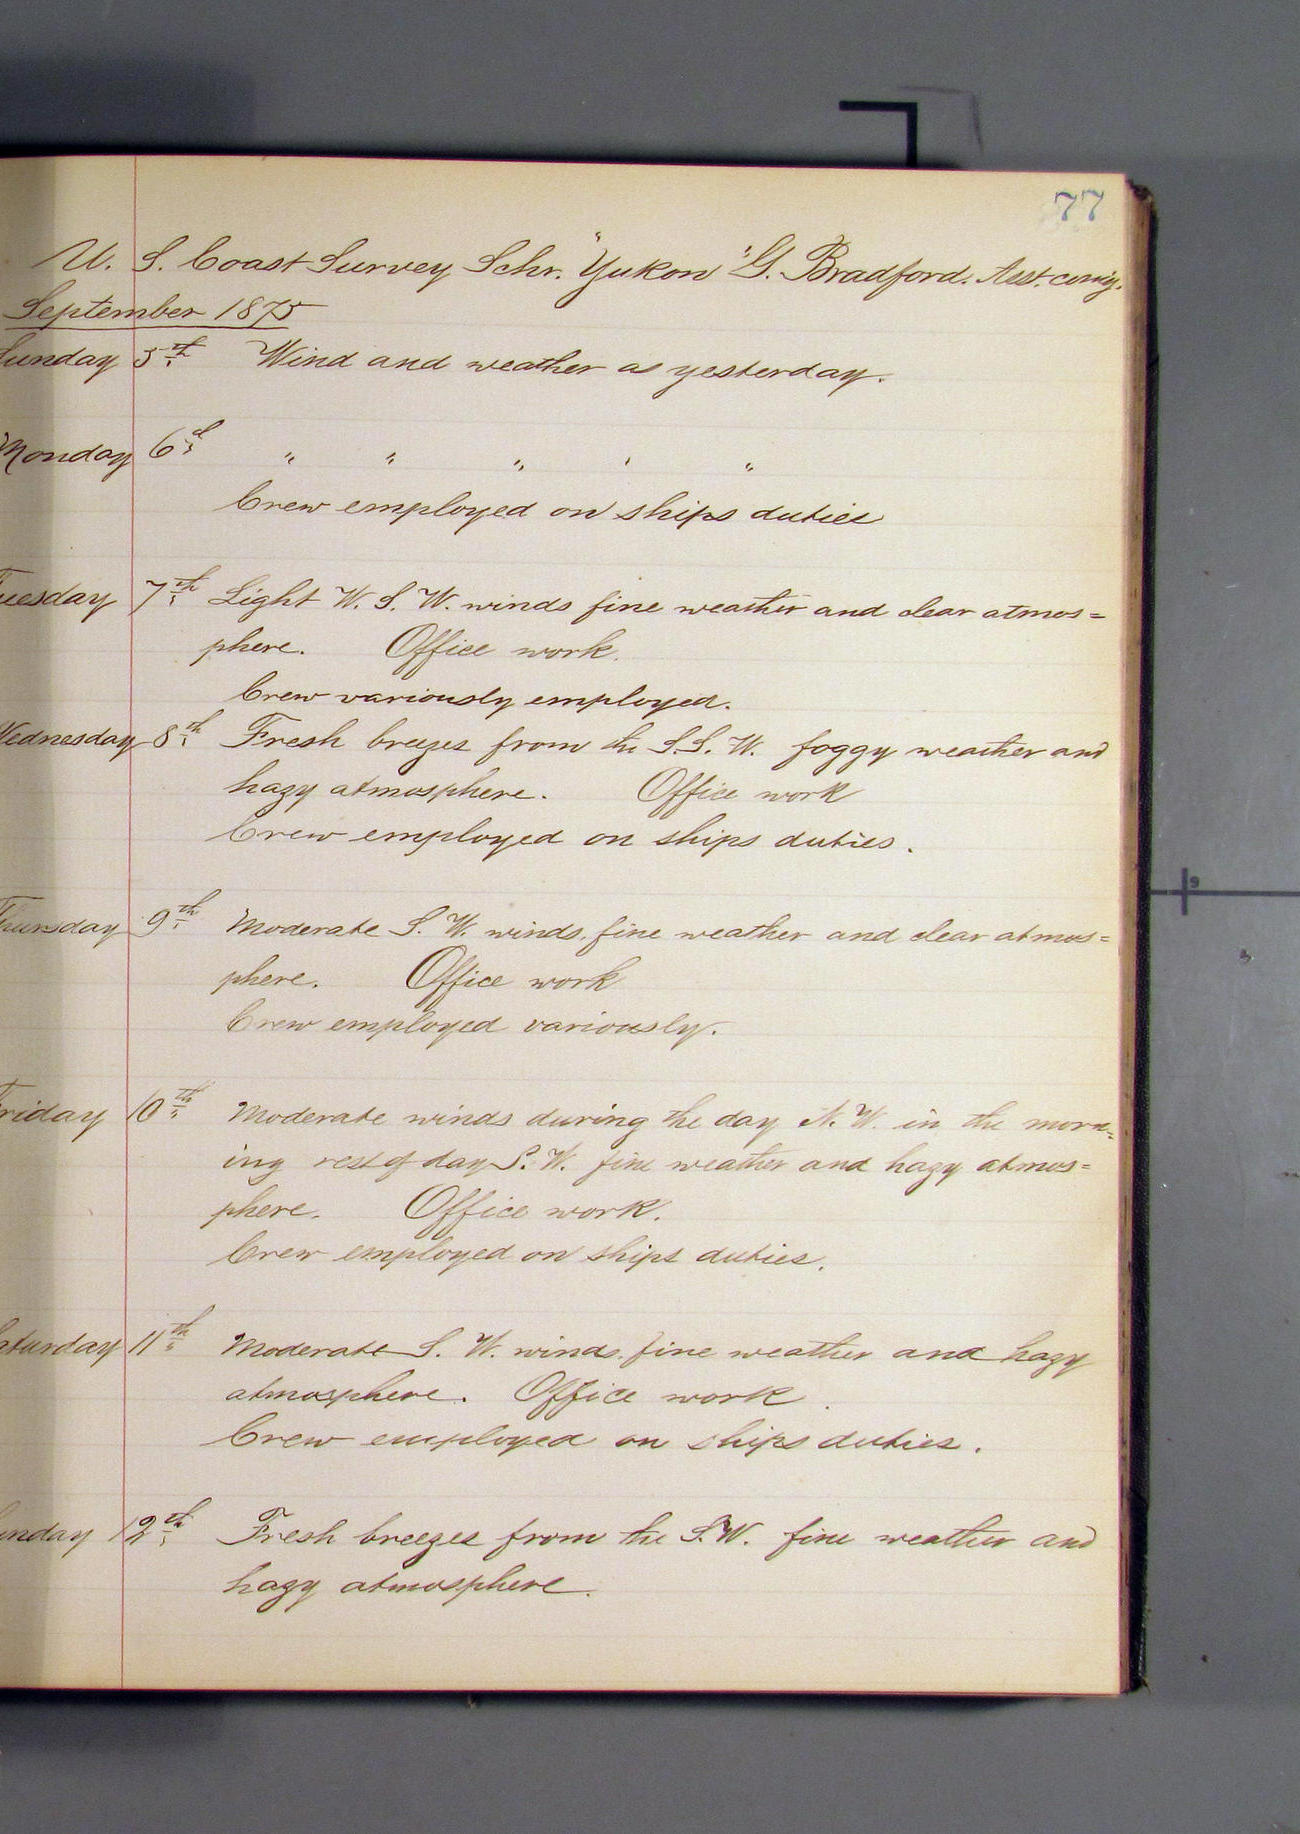 77
U. S. Coast Survey Schr. "Yukon" G. Bradford. Asst. comg.
September 1875
Sunday 5th Wind and weather as yesterday.
Monday 6th " " " " "
Crew employed on ships duties
Tuesday 7th Light W. S. W. winds fine weather and clear atmos=
phere. Office work.
Crew variously employed.
Wednesday 8th Fresh breezes from the S.S. W. foggy weather and
hazy atmosphere. Office work
Crew employed on ships duties.
Thursday 9th Moderate S. W. winds, fine weather and clear atmos=
phere. Office work
Crew employed variously.
Friday 10th Moderate winds during the day N. W. in the morn=
ing rest of day S. W. fine weather and hazy atmos=
phere. Office work.
Crew employed on ships duties.
aturday 11th Moderate S. W. winds, fine weather and hazy
atmosphere. Office work.
Crew employed on ships duties.
unday 12th Fresh breezes from the S.W. fine weather and
hazy atmosphere.